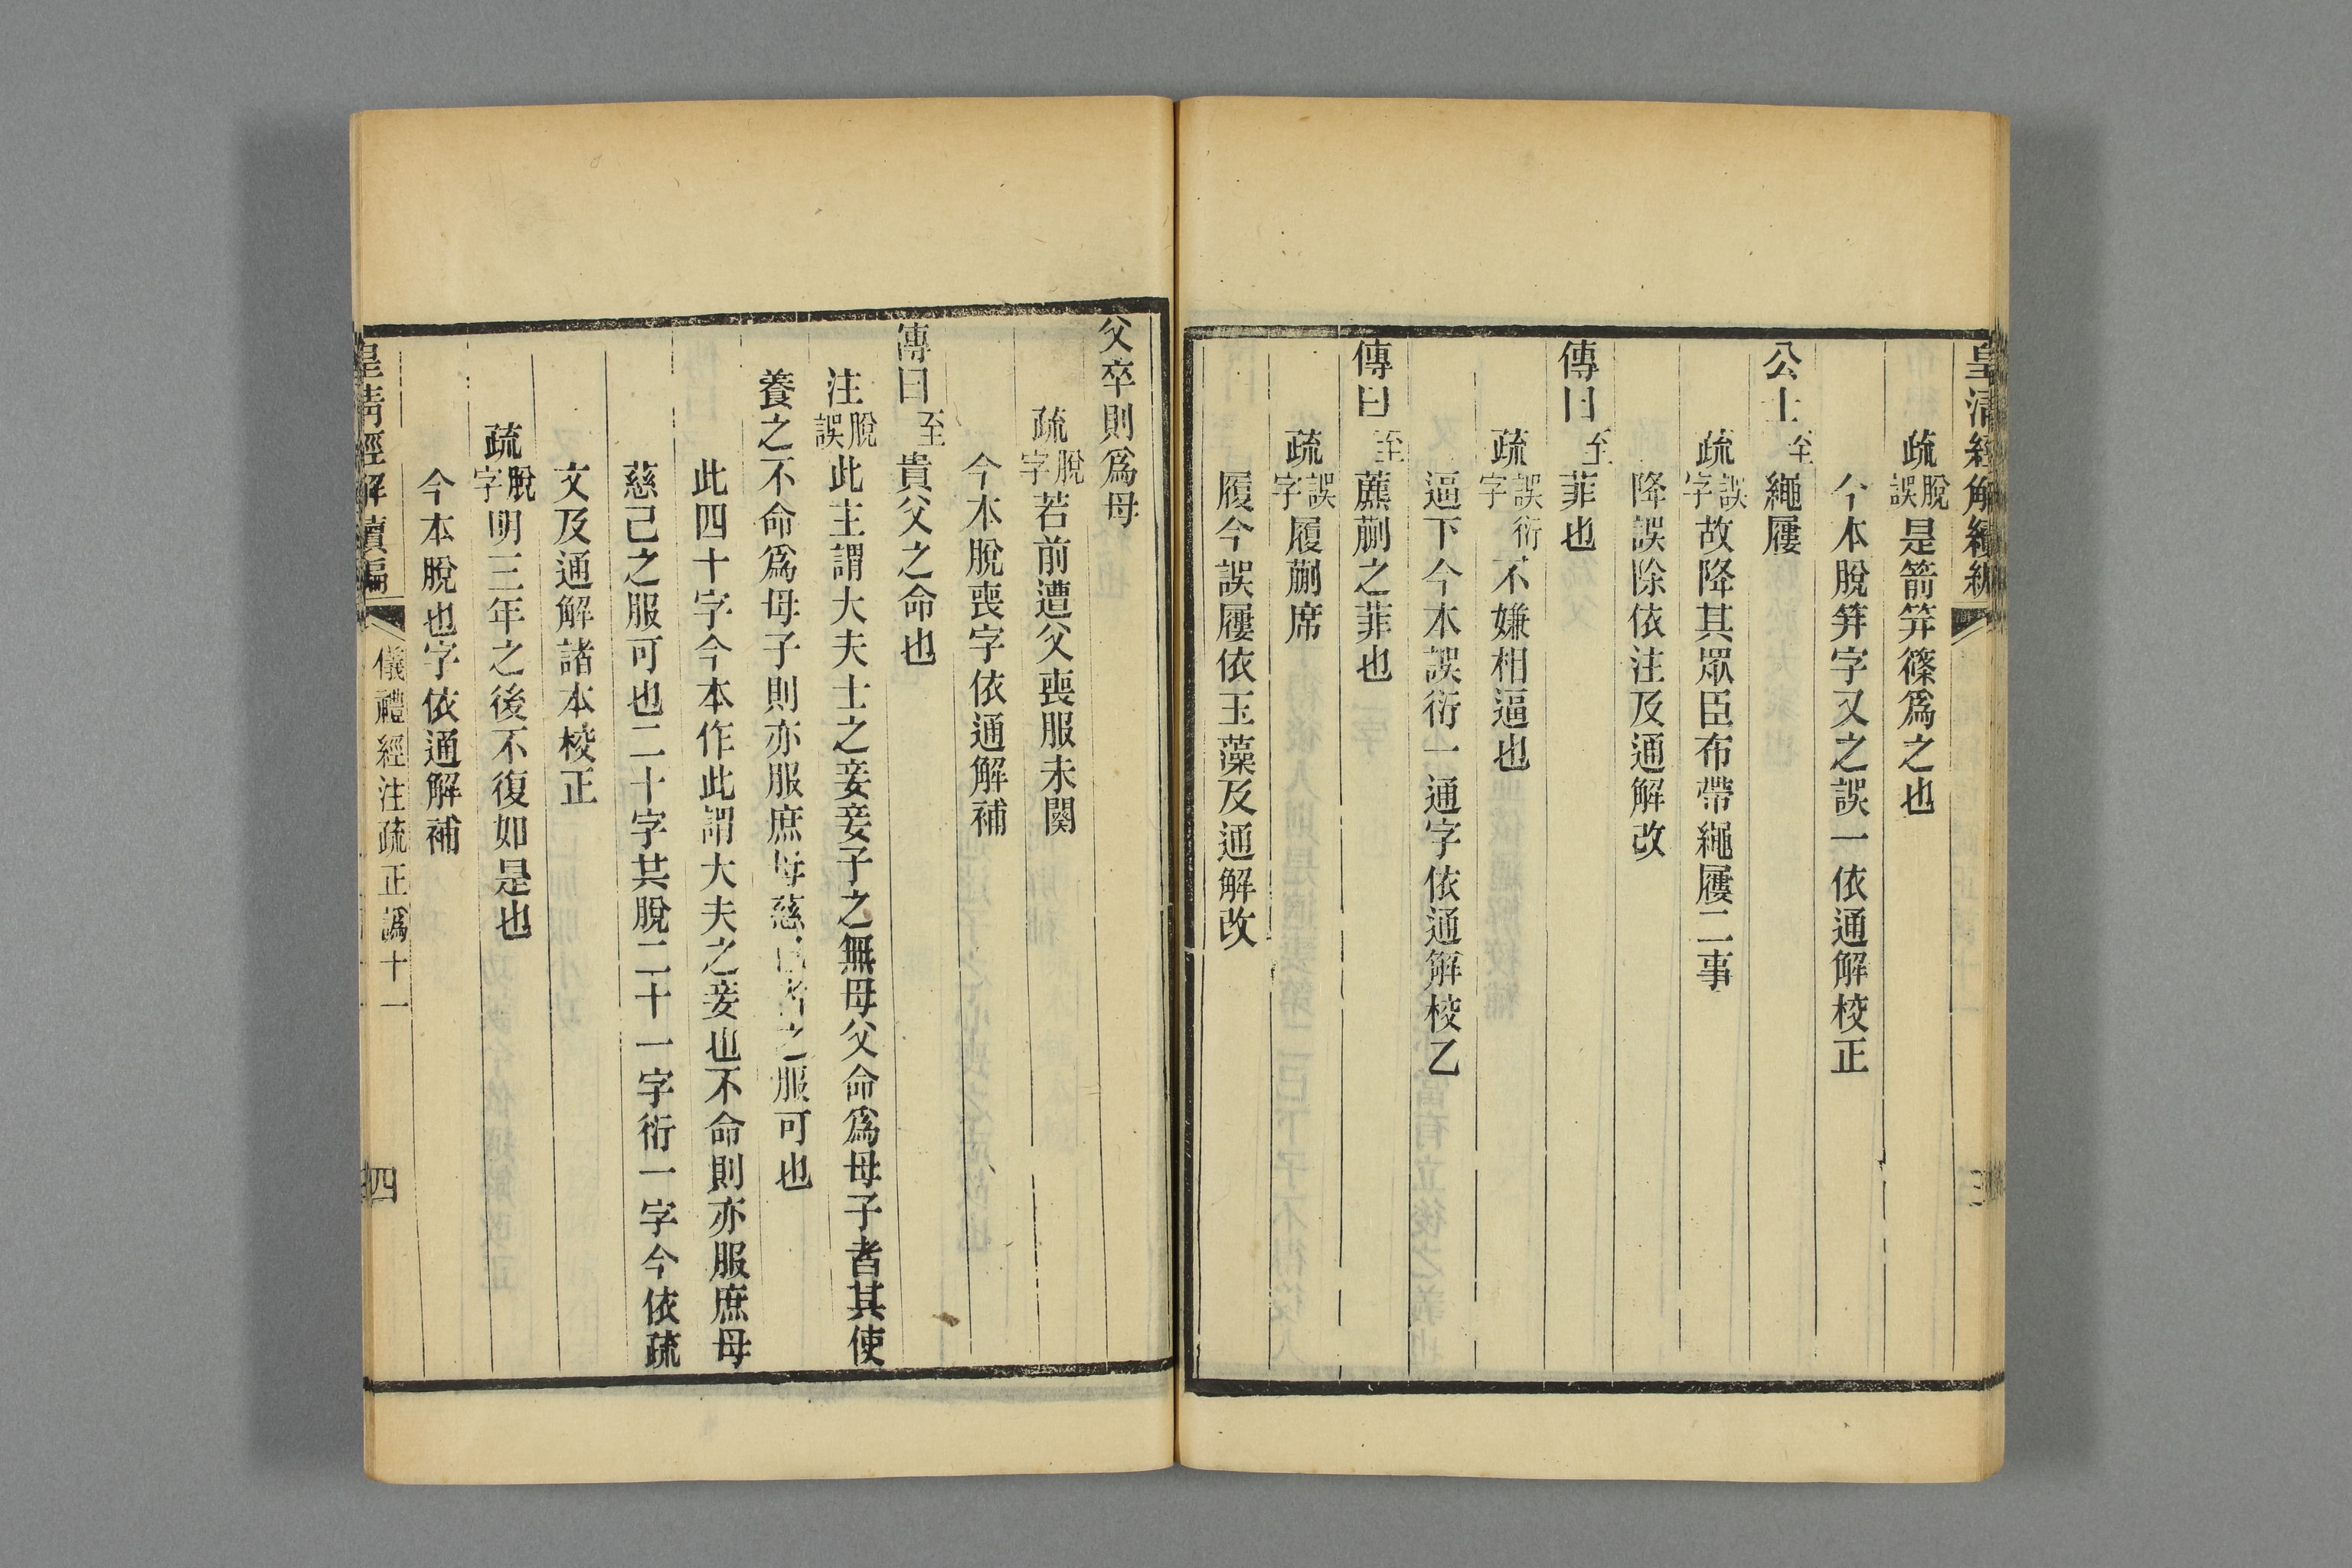 皇清經解續編
三
疏脫誤是箭笄篠爲之也
今本脫笄字又之誤一依通解校正
公士至繩屨
疏誤字故降其眾臣布帶繩屨二事
降誤除依注及通解改
傳曰至菲也
疏誤衍字不嫌相逼也
逼下今本誤衍一通字依通解校乙
傳曰至藨蒯之菲也
疏誤字履蒯席
履今誤屨依玉藻及通解改
父卒則爲母
疏脫字若前遭父喪服未闋
今本脫喪字依通解補
傳曰至貴父之命也
注脫誤此主謂大夫士之妾妾子之無母父命爲母子者其使
養之不命爲母子則亦服庶母慈己者之服可也
此四十字今本作此謂大夫之妾也不命則亦服庶母
慈己之服可也二十字共脫二十一字衍一字今依疏
文及通解諸本校正
疏脫字明三年之後不復如是也
今本脫也字依通解補
皇清經解續編
儀禮經注疏正譌十一
四